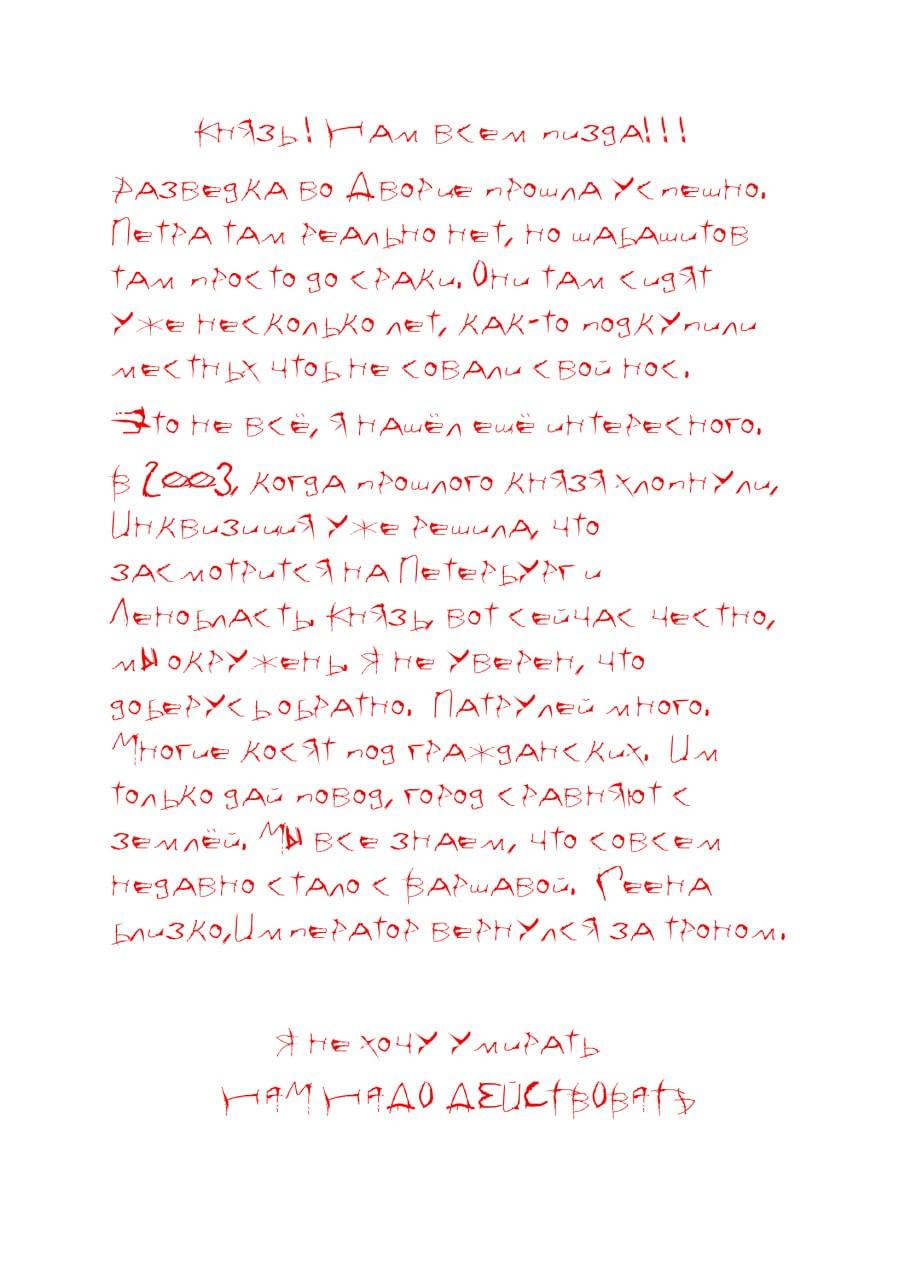 Князь! Нам всем пизда!!!
Разведка во Дворце прошла успешно.
Петра там реально нет, но шабашитов
там просто до сраки. Они там сидят
уже несколько лет, как-то подкупили
местных чтоб не совали свой нос.
Это не всё, я нашёл ещё интересного.
В 2003, когда прошлого князя хлопнули,
Инквизиция уже решила, что
засмотрится на Петербург и
Ленобласть. Князь, вот сейчас честно,
мы окружены. Я не уверен, что
доберусь обратно. Патрулей много.
Многие косят под гражданских. Им
только дай повод, город сравняют с
землёй. Мы все знаем, что совсем
недавно стало с Варшавой. Геена
близко, Император вернулся за троном.
Я не хочу умирать
НАМ НАДО ДЕЙСТВОВАТЬ